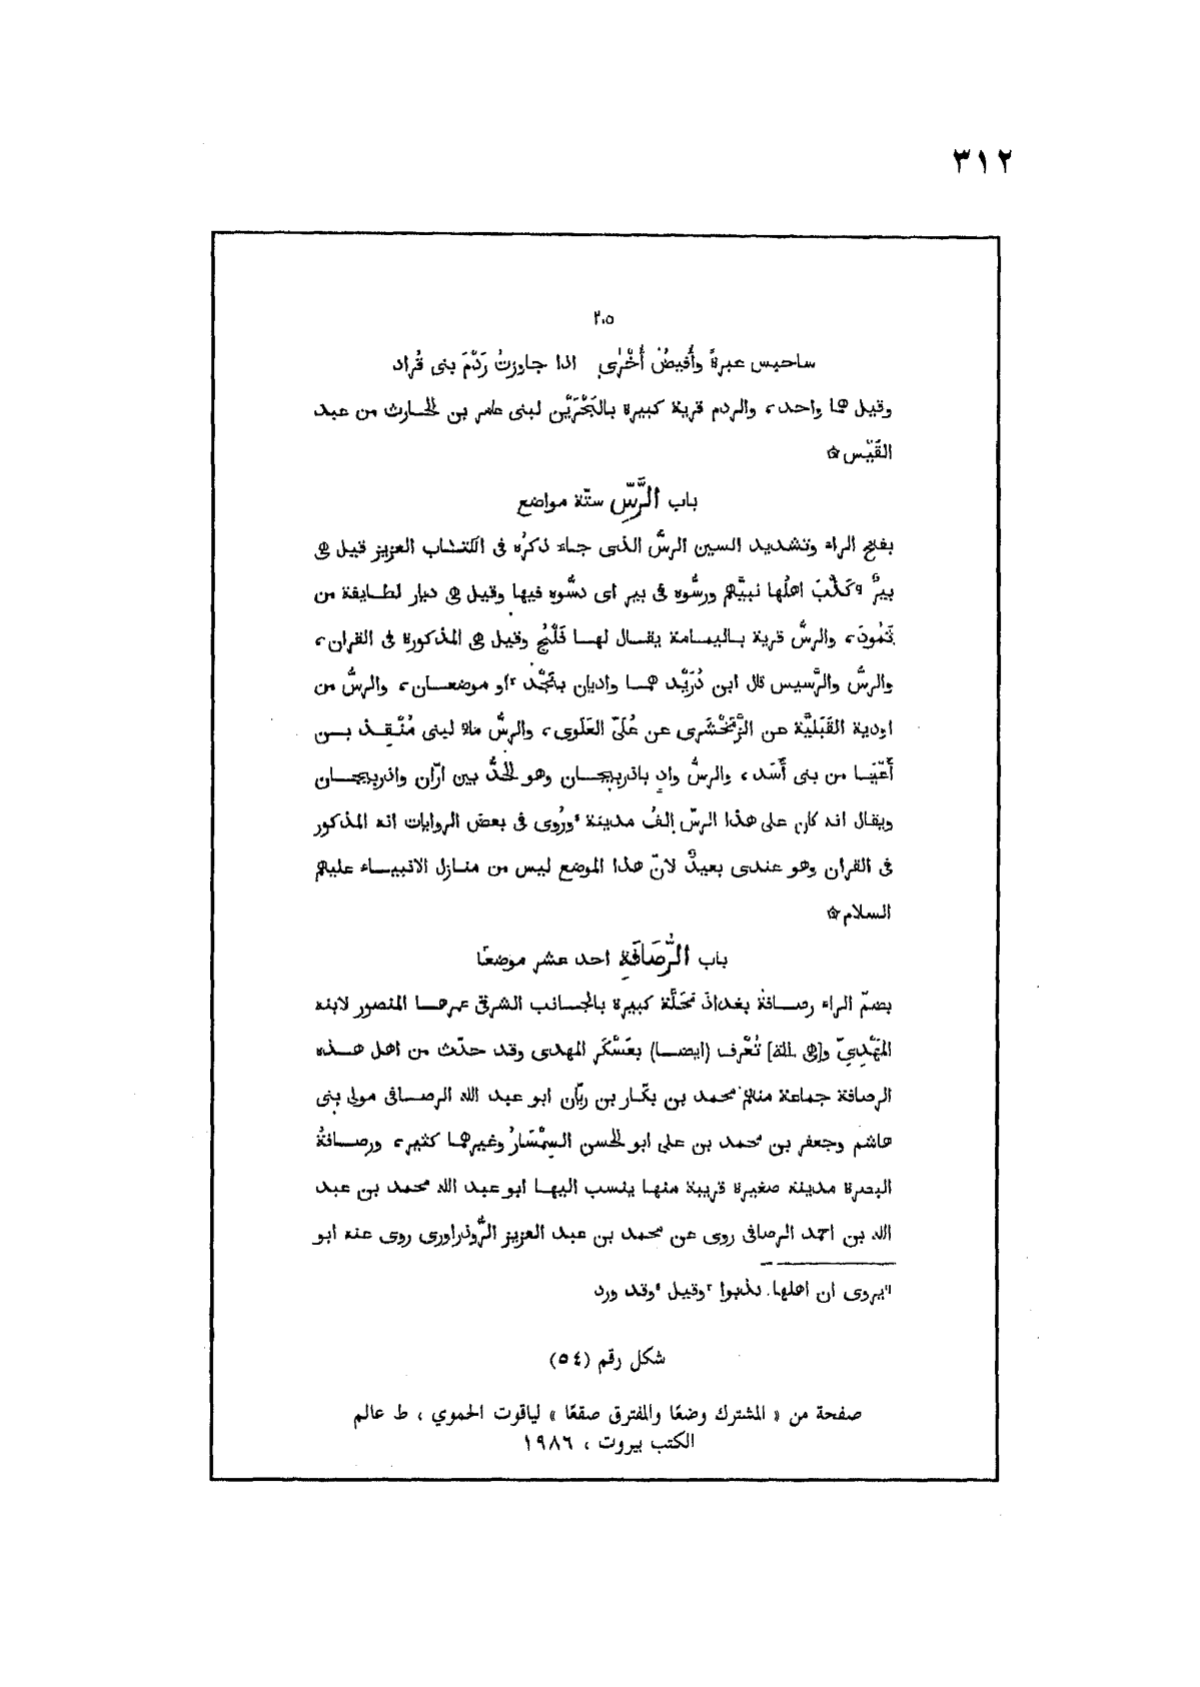 ٣١٢
٢٠٥
ساحبس عبرةً وأُفيضُ أُخْرٰى اذا جاوزتُ رَدْمَ بنى قُراد
وقيل هما واحد، والردم قرية كبيرة بالبَحْرَيْن لبنى عامر بن الحارث من عبد
القَيْس ۞
باب الرَّسِّ ستّة مواضع
بفتح الراء وتشديد السين الرسُّ الذى جاء ذكرُه فى الكتاب العزيز قيل هى
بيرٌ وكَذَّبَ اهلُها نبيَّهم ورسُّوه فى بير اى دسُّوه فيها وقيل هى ديار لطايفة من
ثَمُودَ، والرسُّ قرية باليمامة يقال لها فَلْجٌ وقيل هى المذكورة فى القران،
والرسُّ والرَّسيس قال ابن دُرَيْد هما واديان بنَجْد ٢او موضعان، والرسُّ من
اودية القَبَليَّة عن الزَّمَخْشَرى عن عُلَىّ العَلَوى، والرسُّ ماء لبنى مُنْقِذ بن
أَعْيَا من بنى أَسَد، والرسُّ وادٍ باذربيجان وهو الحَدُّ بين ارّان واذربيجان
ويقال انه كان على هذا الرسّ الفُ مدينة ٤ورُوى فى بعض الروايات انه المذكور
فى القران وهو عندى بعيدٌ لانّ هذا الموضع ليس من منازل الانبياء عليهم
السلام ۞
باب الرُّصَافَةِ احد عشر موضعًا
بضمّ الراء رصافةُ بغداذَ مَحَلَّة كبيرة بالجانب الشرقى عمرها المنصور لابنه
المَهْدِىّ و[هى التى] تُعْرف (ايضا) بعَسْكَر المهدى وقد حدّث من اهل هذه
الرصافة جماعة منهم محمد بن بكّار بن ريّان ابو عبد الله الرصافى مولى بنى
هاشم وجعفر بن محمد بن على ابو الحسن السِمْسَارُ وغيرهما كثير، ورصافةُ
البصرة مدينة صغيرة قريبة منها ينسب اليها ابو عبد الله محمد بن عبد
الله بن احمد الرصافى روى عن محمد بن عبد العزيز الرُّوذراورى روى عنه ابو
١) يروى ان اهلها كذبوا ٢وقيل ٤وقد ورد
شكل رقم (٥٤)
صفحة من « المشترك وضعًا والمفترق صقعًا » لياقوت الحموي ، ط عالم
الكتب بيروت ، ١٩٨٦